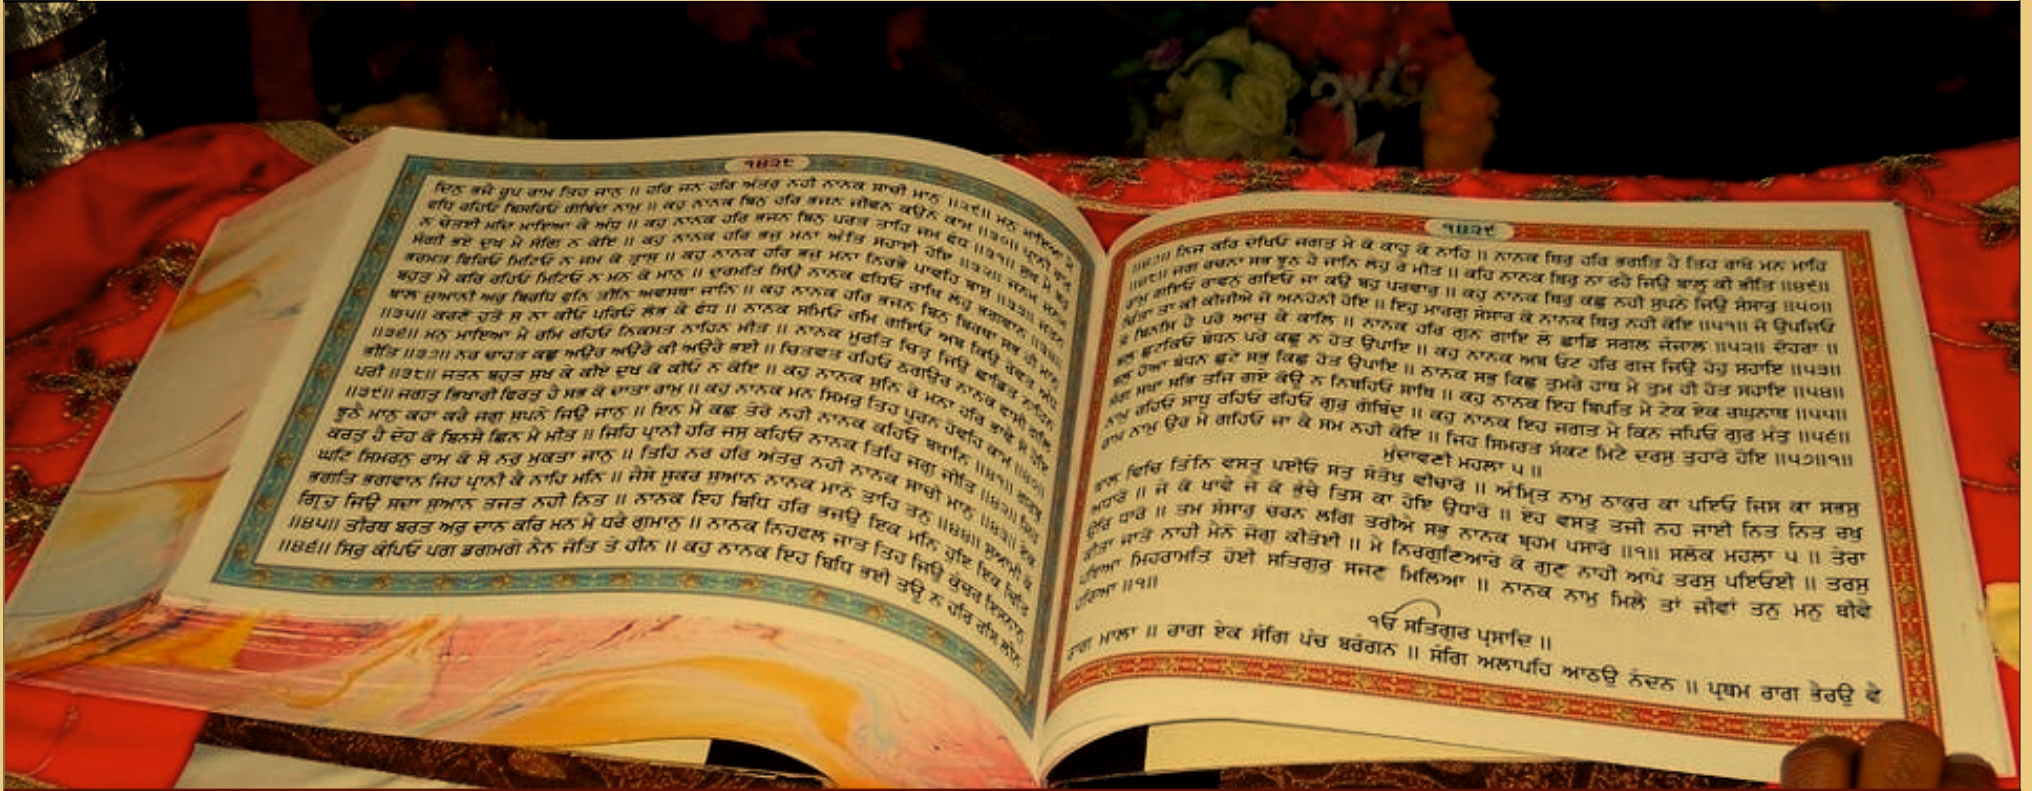 ੧੪੨੮
ਦਿਨੁ ਭਜੈ ਰੂਪ ਰਾਮ ਤਿਹ ਜਾਨੁ ॥ ਹਰਿ ਜਨ ਹਰਿ ਅੰਤਰੁ ਨਹੀ ਨਾਨਕ ਸਾਚੀ ਮਾਨੁ ॥੨੯॥ ਮਨੁ ਮਾਇਆ ਮੈ
ਫਧਿ ਰਹਿਓ ਬਿਸਰਿਓ ਗੋਬਿੰਦ ਨਾਮੁ ॥ ਕਹੁ ਨਾਨਕ ਬਿਨੁ ਹਰਿ ਭਜਨ ਜੀਵਨ ਕਉਨੇ ਕਾਮ ॥੩੦॥ ਪ੍ਰਾਨੀ ਰਾਮੁ
ਨ ਚੇਤਈ ਮਦਿ ਮਾਇਆ ਕੈ ਅੰਧੁ ॥ ਕਹੁ ਨਾਨਕ ਹਰਿ ਭਜਨ ਬਿਨੁ ਪਰਤ ਤਾਹਿ ਜਮ ਫੰਧ ॥੩੧॥ ਸੁਖ ਮੈ ਬਹੁ
ਸੰਗੀ ਭਏ ਦੁਖ ਮੈ ਸੰਗਿ ਨ ਕੋਇ ॥ ਕਹੁ ਨਾਨਕ ਹਰਿ ਭਜੁ ਮਨਾ ਅੰਤਿ ਸਹਾਈ ਹੋਇ ॥੩੨॥ ਜਨਮ ਜਨਮ
ਭਰਮਤ ਫਿਰਿਓ ਮਿਟਿਓ ਨ ਜਮ ਕੋ ਤ੍ਰਾਸੁ ॥ ਕਹੁ ਨਾਨਕ ਹਰਿ ਭਜੁ ਮਨਾ ਨਿਰਭੈ ਪਾਵਹਿ ਬਾਸੁ ॥੩੩॥ ਜਤਨ
ਬਹੁਤੁ ਮੈ ਕਰਿ ਰਹਿਓ ਮਿਟਿਓ ਨ ਮਨ ਕੋ ਮਾਨੁ ॥ ਦੁਰਮਤਿ ਸਿਉ ਨਾਨਕ ਫਧਿਓ ਰਾਖਿ ਲੇਹੁ ਭਗਵਾਨ ॥੩੪॥
ਬਾਲ ਜੁਆਨੀ ਅਰੁ ਬਿਰਧਿ ਫੁਨਿ ਤੀਨਿ ਅਵਸਥਾ ਜਾਨਿ ॥ ਕਹੁ ਨਾਨਕ ਹਰਿ ਭਜਨ ਬਿਨੁ ਬਿਰਥਾ ਸਭ ਹੀ ਮਾਨੁ
॥੩੫॥ ਕਰਣੋ ਹੁਤੋ ਸੁ ਨਾ ਕੀਓ ਪਰਿਓ ਲੋਭ ਕੈ ਫੰਧ ॥ ਨਾਨਕ ਸਮਿਓ ਰਮਿ ਗਇਓ ਅਬ ਕਿਉ ਰੋਵਤ ਅੰਧ
॥੩੬॥ ਮਨੁ ਮਾਇਆ ਮੈ ਰਮਿ ਰਹਿਓ ਨਿਕਸਤ ਨਾਹਿਨ ਮੀਤ ॥ ਨਾਨਕ ਮੂਰਤਿ ਚਿਤ੍ਰ ਜਿਉ ਛਾਡਿਤ ਨਾਹਿਨ
ਭੀਤਿ ॥੩੭॥ ਨਰ ਚਾਹਤ ਕਛੁ ਅਉਰ ਅਉਰੈ ਕੀ ਅਉਰੈ ਭਈ ॥ ਚਿਤਵਤ ਰਹਿਓ ਠਗਉਰ ਨਾਨਕ ਫਾਸੀ ਗਲਿ
ਪਰੀ ॥੩੮॥ ਜਤਨ ਬਹੁਤ ਸੁਖ ਕੇ ਕੀਏ ਦੁਖ ਕੋ ਕੀਓ ਨ ਕੋਇ ॥ ਕਹੁ ਨਾਨਕ ਸੁਨਿ ਰੇ ਮਨਾ ਹਰਿ ਭਾਵੈ ਸੋ ਹੋਇ
॥੩੯॥ ਜਗਤੁ ਭਿਖਾਰੀ ਫਿਰਤੁ ਹੈ ਸਭ ਕੋ ਦਾਤਾ ਰਾਮੁ ॥ ਕਹੁ ਨਾਨਕ ਮਨ ਸਿਮਰੁ ਤਿਹ ਪੂਰਨ ਹੋਵਹਿ ਕਾਮ ॥੪੦॥
ਝੂਠੈ ਮਾਨੁ ਕਹਾ ਕਰੈ ਜਗੁ ਸੁਪਨੇ ਜਿਉ ਜਾਨੁ ॥ ਇਨ ਮੈ ਕਛੁ ਤੇਰੋ ਨਹੀ ਨਾਨਕ ਕਹਿਓ ਬਖਾਨਿ ॥੪੧॥ ਗਰਬੁ
ਕਰਤੁ ਹੈ ਦੇਹ ਕੋ ਬਿਨਸੈ ਛਿਨ ਮੈ ਮੀਤ ॥ ਜਿਹਿ ਪ੍ਰਾਨੀ ਹਰਿ ਜਸੁ ਕਹਿਓ ਨਾਨਕ ਤਿਹਿ ਜਗੁ ਜੀਤਿ ॥੪੨॥ ਜਿਹ
ਘਟਿ ਸਿਮਰਨੁ ਰਾਮ ਕੋ ਸੋ ਨਰੁ ਮੁਕਤਾ ਜਾਨੁ ॥ ਤਿਹਿ ਨਰ ਹਰਿ ਅੰਤਰੁ ਨਹੀ ਨਾਨਕ ਸਾਚੀ ਮਾਨੁ ॥੪੩॥ ਏਕ
ਭਗਤਿ ਭਗਵਾਨ ਜਿਹ ਪ੍ਰਾਨੀ ਕੈ ਨਾਹਿ ਮਨਿ ॥ ਜੈਸੇ ਸੂਕਰ ਸੁਆਨ ਨਾਨਕ ਮਾਨੋ ਤਾਹਿ ਤਨੁ ॥੪੪॥ ਸੁਆਮੀ ਕੋ
ਗ੍ਰਿਹੁ ਜਿਉ ਸਦਾ ਸੁਆਨ ਤਜਤ ਨਹੀ ਨਿਤ ॥ ਨਾਨਕ ਇਹ ਬਿਧਿ ਹਰਿ ਭਜਉ ਇਕ ਮਨਿ ਹੁਇ ਇਕ ਚਿਤਿ
॥੪੫॥ ਤੀਰਥ ਬਰਤ ਅਰੁ ਦਾਨ ਕਰਿ ਮਨ ਮੈ ਧਰੈ ਗੁਮਾਨੁ ॥ ਨਾਨਕ ਨਿਹਫਲ ਜਾਤ ਤਿਹ ਜਿਉ ਕੁੰਚਰ ਇਸਨਾਨੁ
॥੪੬॥ ਸਿਰੁ ਕੰਪਿਓ ਪਗ ਡਗਮਗੇ ਨੈਨ ਜੋਤਿ ਤੇ ਹੀਨ ॥ ਕਹੁ ਨਾਨਕ ਇਹ ਬਿਧਿ ਭਈ ਤਊ ਨ ਹਰਿ ਰਸਿ ਲੀਨ
੧੪੨੯
॥੪੭॥ ਨਿਜ ਕਰਿ ਦੇਖਿਓ ਜਗਤੁ ਮੈ ਕੋ ਕਾਹੂ ਕੋ ਨਾਹਿ ॥ ਨਾਨਕ ਥਿਰੁ ਹਰਿ ਭਗਤਿ ਹੈ ਤਿਹ ਰਾਖੋ ਮਨ ਮਾਹਿ
॥੪੮॥ ਜਗ ਰਚਨਾ ਸਭ ਝੂਠ ਹੈ ਜਾਨਿ ਲੇਹੁ ਰੇ ਮੀਤ ॥ ਕਹਿ ਨਾਨਕ ਥਿਰੁ ਨਾ ਰਹੈ ਜਿਉ ਬਾਲੂ ਕੀ ਭੀਤਿ ॥੪੯॥
ਰਾਮੁ ਗਇਓ ਰਾਵਨੁ ਗਇਓ ਜਾ ਕਉ ਬਹੁ ਪਰਵਾਰੁ ॥ ਕਹੁ ਨਾਨਕ ਥਿਰੁ ਕਛੁ ਨਹੀ ਸੁਪਨੇ ਜਿਉ ਸੰਸਾਰੁ ॥੫੦॥
ਚਿੰਤਾ ਤਾ ਕੀ ਕੀਜੀਐ ਜੋ ਅਨਹੋਨੀ ਹੋਇ ॥ ਇਹੁ ਮਾਰਗੁ ਸੰਸਾਰ ਕੋ ਨਾਨਕ ਥਿਰੁ ਨਹੀ ਕੋਇ ॥੫੧॥ ਜੋ ਉਪਜਿਓ
ਸੋ ਬਿਨਸਿ ਹੈ ਪਰੋ ਆਜੁ ਕੈ ਕਾਲਿ ॥ ਨਾਨਕ ਹਰਿ ਗੁਨ ਗਾਇ ਲੇ ਛਾਡਿ ਸਗਲ ਜੰਜਾਲ ॥੫੨॥ ਦੋਹਰਾ ॥
ਬਲੁ ਛੁਟਕਿਓ ਬੰਧਨ ਪਰੇ ਕਛੂ ਨ ਹੋਤ ਉਪਾਇ ॥ ਕਹੁ ਨਾਨਕ ਅਬ ਓਟ ਹਰਿ ਗਜ ਜਿਉ ਹੋਹੁ ਸਹਾਇ ॥੫੩॥
ਬਲੁ ਹੋਆ ਬੰਧਨ ਛੁਟੇ ਸਭੁ ਕਿਛੁ ਹੋਤ ਉਪਾਇ ॥ ਨਾਨਕ ਸਭੁ ਕਿਛੁ ਤੁਮਰੈ ਹਾਥ ਮੈ ਤੁਮ ਹੀ ਹੋਤ ਸਹਾਇ ॥੫੪॥
ਸੰਗ ਸਖਾ ਸਭਿ ਤਜਿ ਗਏ ਕੋਊ ਨ ਨਿਬਹਿਓ ਸਾਥਿ ॥ ਕਹੁ ਨਾਨਕ ਇਹ ਬਿਪਤਿ ਮੈ ਟੇਕ ਏਕ ਰਘੁਨਾਥ ॥੫੫॥
ਨਾਮੁ ਰਹਿਓ ਸਾਧੂ ਰਹਿਓ ਰਹਿਓ ਗੁਰੁ ਗੋਬਿੰਦੁ ॥ ਕਹੁ ਨਾਨਕ ਇਹ ਜਗਤ ਮੈ ਕਿਨ ਜਪਿਓ ਗੁਰ ਮੰਤੁ ॥੫੬॥
ਰਾਮ ਨਾਮੁ ਉਰ ਮੈ ਗਹਿਓ ਜਾ ਕੈ ਸਮ ਨਹੀ ਕੋਇ ॥ ਜਿਹ ਸਿਮਰਤ ਸੰਕਟ ਮਿਟੈ ਦਰਸੁ ਤੁਹਾਰੋ ਹੋਇ ॥੫੭॥੧॥
ਮੁੰਦਾਵਣੀ ਮਹਲਾ ੫ ॥
ਥਾਲ ਵਿਚਿ ਤਿੰਨਿ ਵਸਤੂ ਪਈਓ ਸਤੁ ਸੰਤੋਖੁ ਵੀਚਾਰੋ ॥ ਅੰਮ੍ਰਿਤ ਨਾਮੁ ਠਾਕੁਰ ਕਾ ਪਇਓ ਜਿਸ ਕਾ ਸਭਸੁ
ਅਧਾਰੋ ॥ ਜੇ ਕੋ ਖਾਵੈ ਜੇ ਕੋ ਭੁੰਚੈ ਤਿਸ ਕਾ ਹੋਇ ਉਧਾਰੋ ॥ ਏਹ ਵਸਤੁ ਤਜੀ ਨਹ ਜਾਈ ਨਿਤ ਨਿਤ ਰਖੁ
ਉਰਿ ਧਾਰੋ ॥ ਤਮ ਸੰਸਾਰੁ ਚਰਨ ਲਗਿ ਤਰੀਐ ਸਭੁ ਨਾਨਕ ਬ੍ਰਹਮ ਪਸਾਰੋ ॥੧॥ ਸਲੋਕ ਮਹਲਾ ੫ ॥ ਤੇਰਾ
ਕੀਤਾ ਜਾਤੋ ਨਾਹੀ ਮੈਨੋ ਜੋਗੁ ਕੀਤੋਈ ॥ ਮੈ ਨਿਰਗੁਣਿਆਰੇ ਕੋ ਗੁਣੁ ਨਾਹੀ ਆਪੇ ਤਰਸੁ ਪਇਓਈ ॥ ਤਰਸੁ
ਪਇਆ ਮਿਹਰਾਮਤਿ ਹੋਈ ਸਤਿਗੁਰੁ ਸਜਣੁ ਮਿਲਿਆ ॥ ਨਾਨਕ ਨਾਮੁ ਮਿਲੈ ਤਾਂ ਜੀਵਾਂ ਤਨੁ ਮਨੁ ਥੀਵੈ
ਹਰਿਆ ॥੧॥
ੴ ਸਤਿਗੁਰ ਪ੍ਰਸਾਦਿ ॥
ਰਾਗ ਮਾਲਾ ॥ ਰਾਗ ਏਕ ਸੰਗਿ ਪੰਚ ਬਰੰਗਨ ॥ ਸੰਗਿ ਅਲਾਪਹਿ ਆਠਉ ਨੰਦਨ ॥ ਪ੍ਰਥਮ ਰਾਗ ਭੈਰਉ ਵੈ